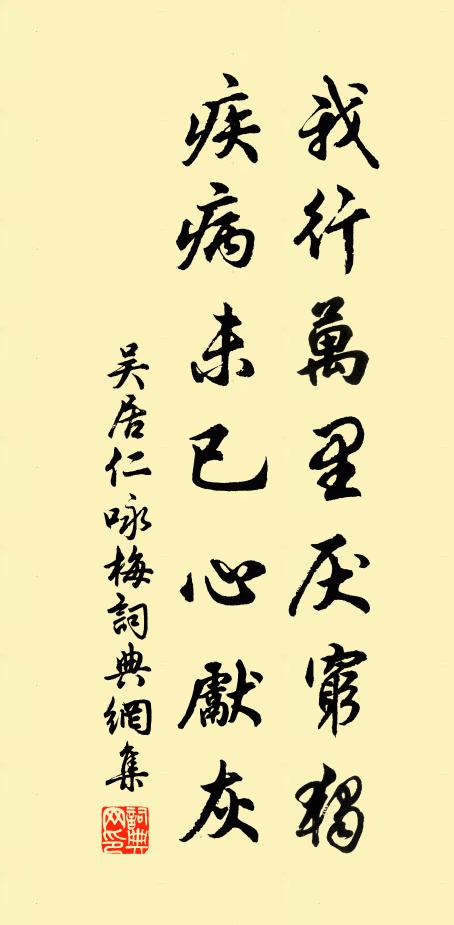 我行萬里厌窮獨
疾病未已心獻灰
吴居仁咏梅詞典網集
詞典網印